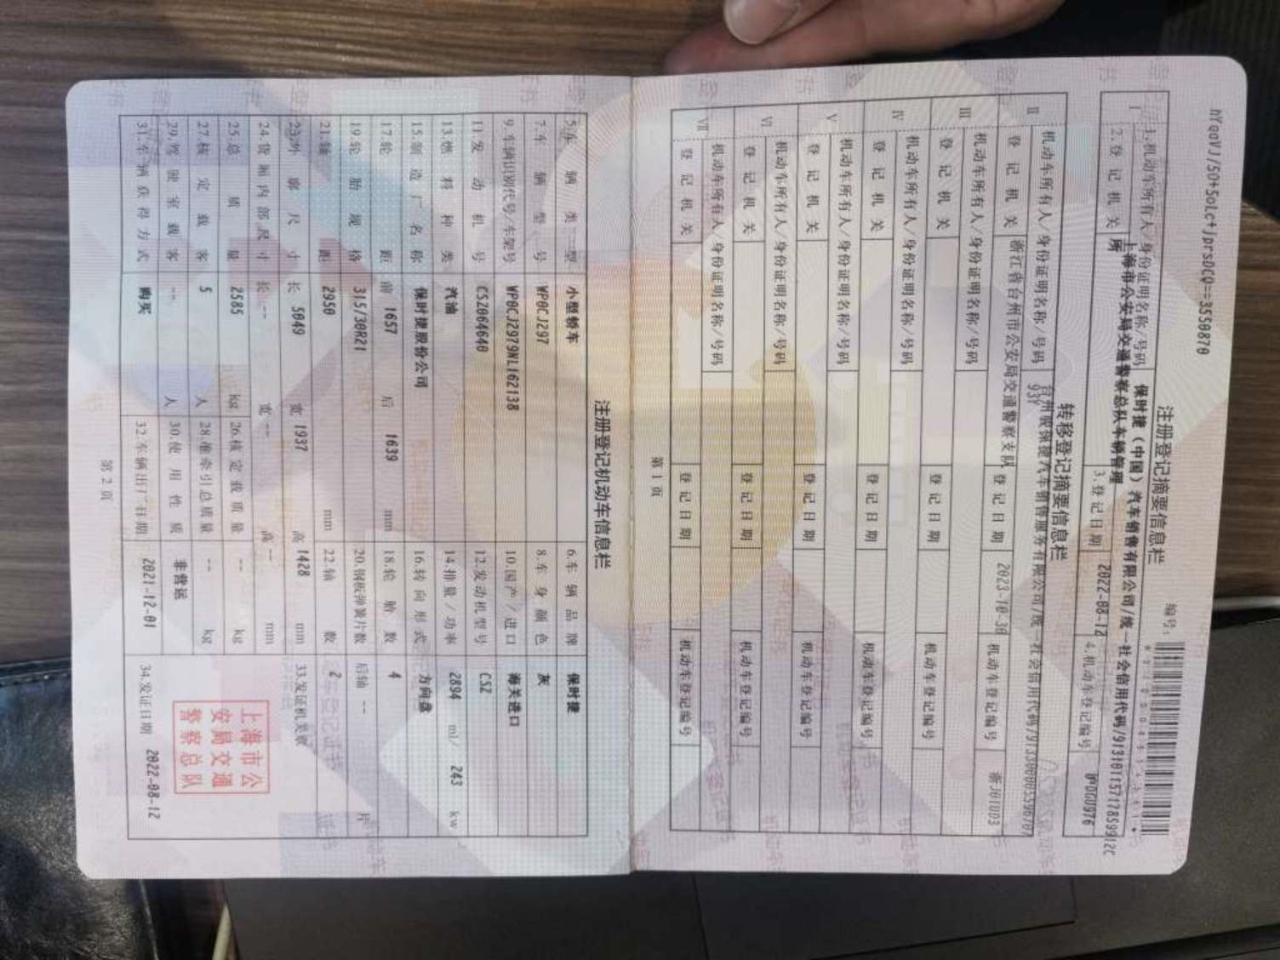 hYqaVJ/SO+5oLc+JprsDCQ==3550870
注册登记摘要信息栏
编号:
I
1.机动车所有人/身份证明名称/号码 保时捷（中国）汽车销售有限公司/统一社会信用代码/91310115717859912C
2.登记机关 上海市公安局交通警察总队车辆管理所
3.登记日期 2022-08-12
4.机动车登记编号 沪DGU976
转移登记摘要信息栏
II
机动车所有人/身份证明名称/号码
登记机关 浙江省台州市公安局交通警察支队
登记日期 2023-10-30
机动车登记编号 浙J01UD3
III
机动车所有人/身份证明名称/号码
登记机关 登记日期 机动车登记编号
IV
机动车所有人/身份证明名称/号码
登记机关 登记日期 机动车登记编号
V
机动车所有人/身份证明名称/号码
登记机关 登记日期 机动车登记编号
VI
机动车所有人/身份证明名称/号码
登记机关 登记日期 机动车登记编号
VII
机动车所有人/身份证明名称/号码
登记机关 登记日期 机动车登记编号
第 1 页
注册登记机动车信息栏
5.车辆类型 小型轿车 6.车辆品牌 保时捷
7.车辆型号 WP0CJ297 8.车身颜色 灰
9.车辆识别代号/车架号 WP0CJ2979NL162138 10.国产/进口 海关进口
11.发动机号 CSZ064640 12.发动机型号 CSZ
13.燃料种类 汽油 14.排量/功率 2894 ml/ 243 kw
15.制造厂名称 保时捷股份公司 16.转向形式 方向盘
17.轮距 前 1657 后 1639 mm 18.轮胎数 4
19.轮胎规格 315/30R21 20.钢板弹簧片数 后轴 -- 片
21.轴距 2950 mm 22.轴数 2
23.外廓尺寸 长 5049 宽 1937 高 1428 mm 33.发证机关章
24.货厢内部尺寸 长 -- 宽 -- 高 -- mm
25.总质量 2585 kg 26.核定载质量 -- kg
27.核定载客 5 人 28.准牵引总质量 -- kg
29.驾驶室载客 -- 人 30.使用性质 非营运
31.车辆获得方式 购买 32.车辆出厂日期 2021-12-01 34.发证日期 2022-08-12
上海市公
安局交通
警察总队
第 2 页